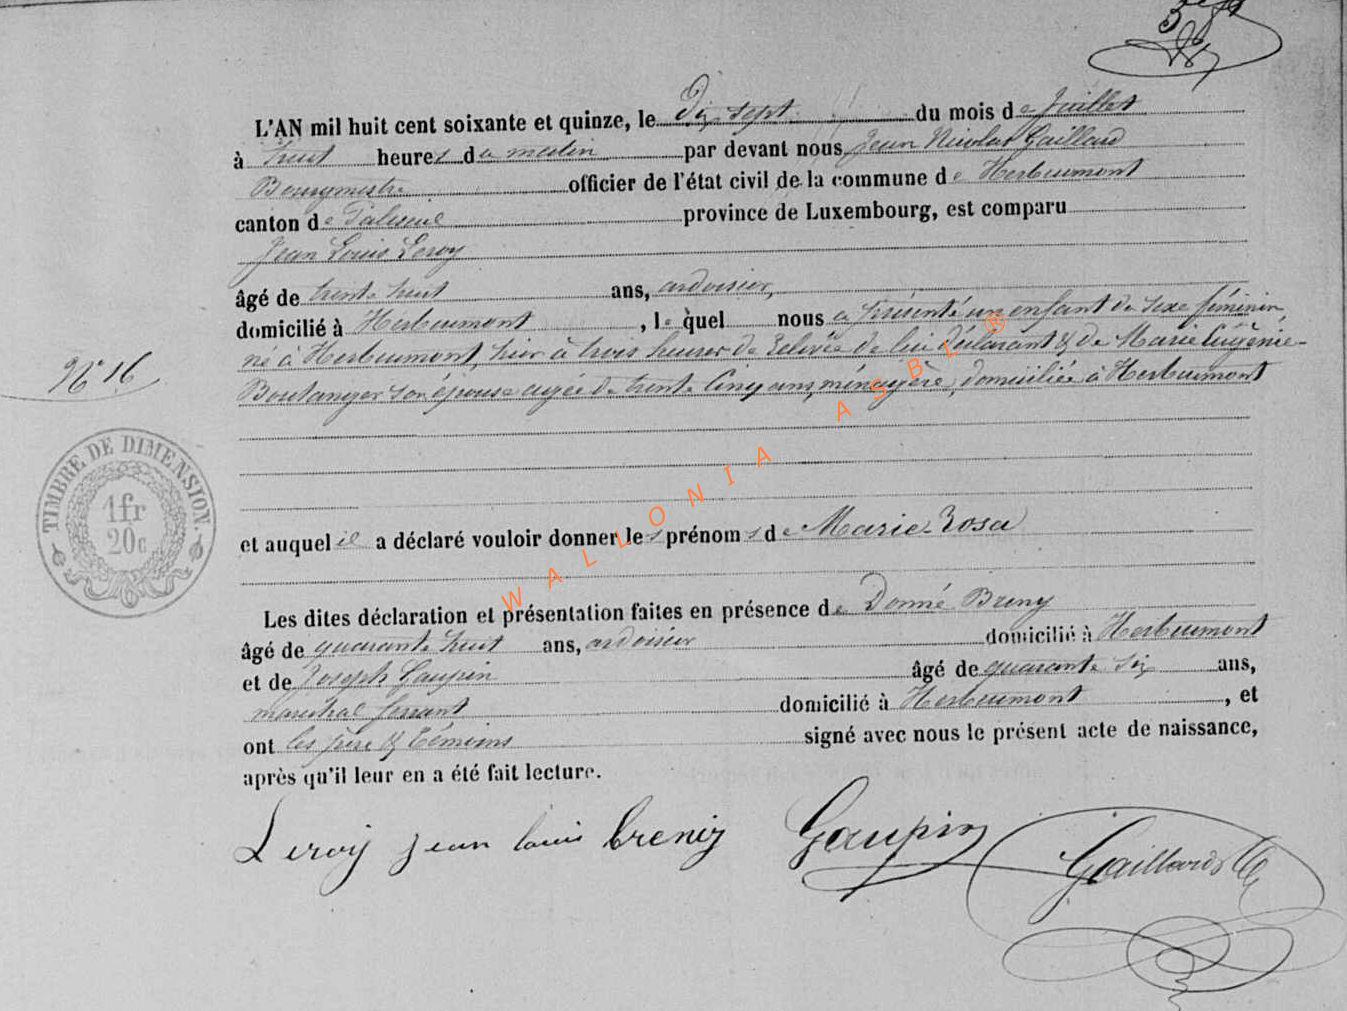 L'AN mil huit cent soixante et quinze, le Dix sept du mois de Juillet
à huit heures du matin par devant nous Jean Nicolas Gaillard
Bourgmestre officier de l'état civil de la commune de Herbeumont
canton de Paliseul province de Luxembourg, est comparu
Jean Louis Leroy
âgé de trente huit ans, ardoisier,
domicilié à Herbeumont, lequel nous a présenté un enfant du sexe féminin,
né à Herbeumont, hier à trois heures de relevée de lui déclarant & de Marie Eugénie
N° 16
Boulanger son épouse agée de trente cinq ans, ménagère, domiciliée à Herbeumont
TIMBRE DE DIMENSION
1fr
20c
et auquel il a déclaré vouloir donner les prénoms de Marie Rosa
Les dites déclaration et présentation faites en présence de Donné Breny
âgé de quarante huit ans, ardoisier domicilié à Herbeumont
et de Joseph Gaupin âgé de quarante six ans,
maréchal ferrant domicilié à Herbeumont, et
ont les père & témoins signé avec nous le présent acte de naissance,
après qu'il leur en a été fait lecture.
Leroy jean louis Breniy Gaupin Gaillard
WALLONIA ASBL ®